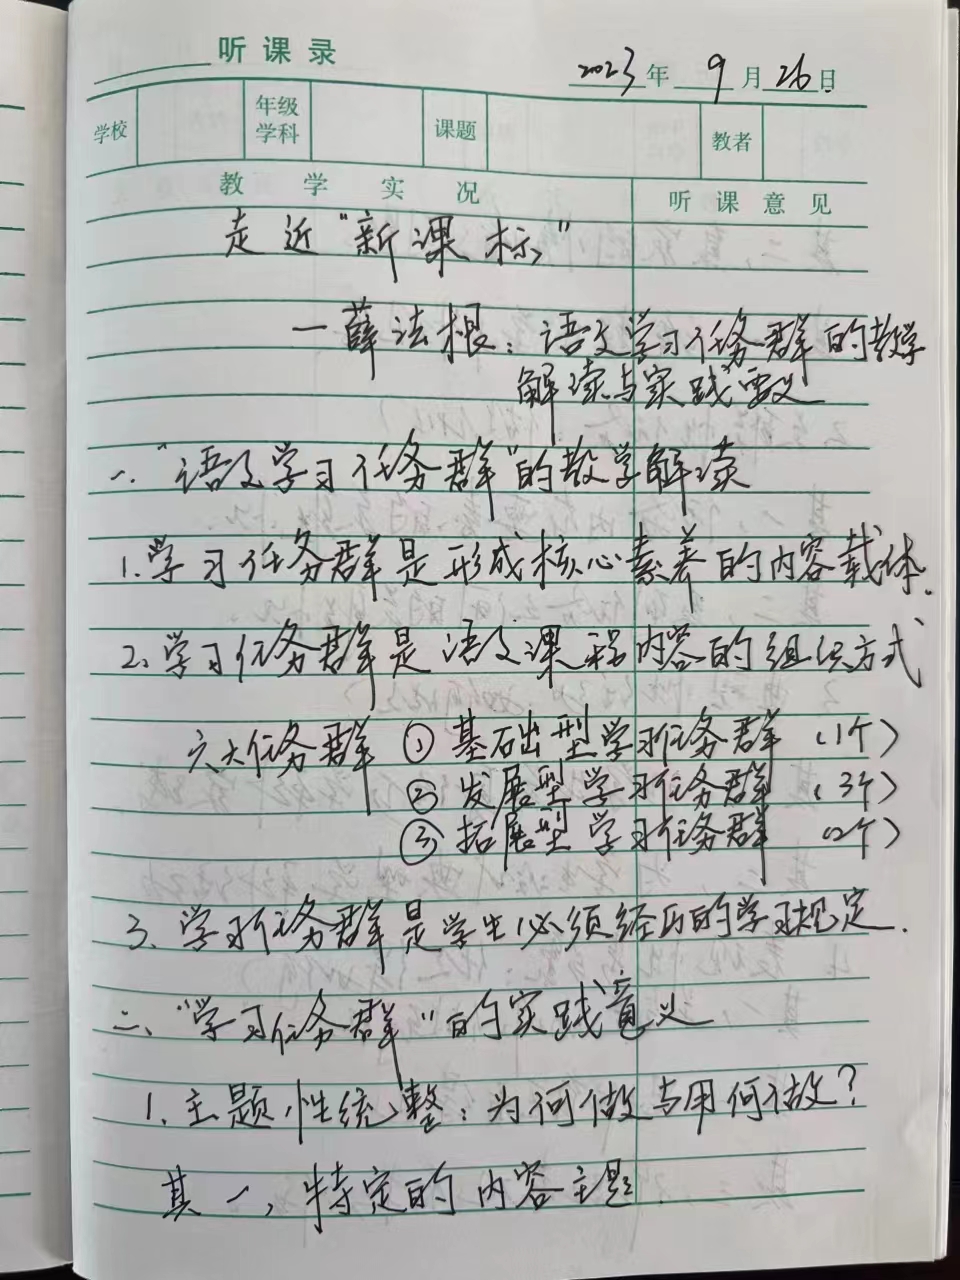 听课录
2023年9月26日
学校 年级学科 课题 教者
教学实况 听课意见
走近“新课标”
—薛法根：语文学习任务群的教学
解读与实践意义
一、“语文学习任务群”的教学解读
1.学习任务群是形成核心素养的内容载体.
2、学习任务群是语文课程内容的组织方式
六大任务群 ①基础型学习任务群（1个）
②发展型学习任务群（3个）
③拓展型学习任务群（2个）
3、学习任务群是学生必须经历的学习规定.
二、“学习任务群”的实践意义
1.主题性统整：为何做与用何做？
其一，特定的内容主题